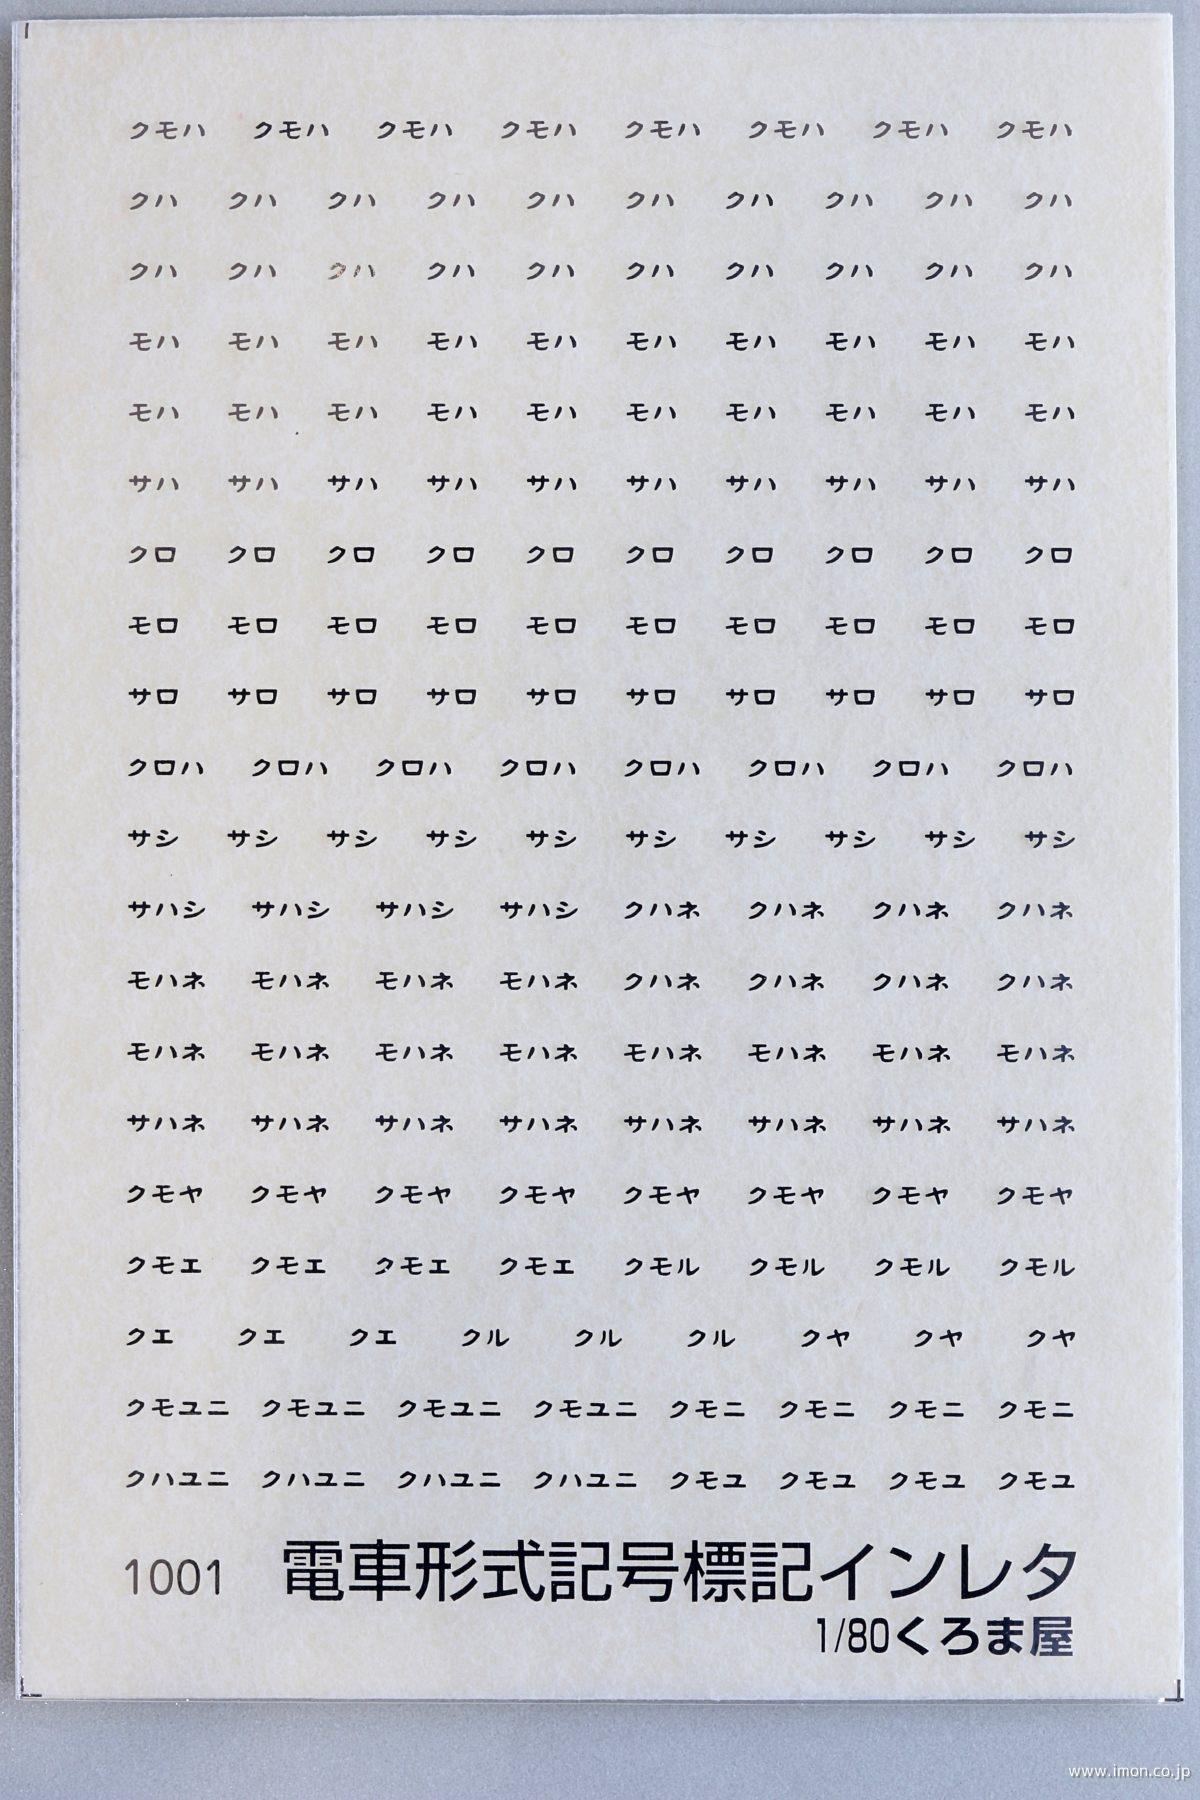 クモハ クモハ クモハ クモハ クモハ クモハ クモハ クモハ
クハ クハ クハ クハ クハ クハ クハ クハ クハ クハ
クハ クハ クハ クハ クハ クハ クハ クハ クハ クハ
モハ モハ モハ モハ モハ モハ モハ モハ モハ モハ
モハ モハ モハ モハ モハ モハ モハ モハ モハ モハ
サハ サハ サハ サハ サハ サハ サハ サハ サハ サハ
クロ クロ クロ クロ クロ クロ クロ クロ クロ クロ
モロ モロ モロ モロ モロ モロ モロ モロ モロ モロ
サロ サロ サロ サロ サロ サロ サロ サロ サロ サロ
クロハ クロハ クロハ クロハ クロハ クロハ クロハ クロハ
サシ サシ サシ サシ サシ サシ サシ サシ サシ サシ
サハシ サハシ サハシ サハシ クハネ クハネ クハネ クハネ
モハネ モハネ モハネ モハネ クハネ クハネ クハネ クハネ
モハネ モハネ モハネ モハネ モハネ モハネ モハネ モハネ
サハネ サハネ サハネ サハネ サハネ サハネ サハネ サハネ
クモヤ クモヤ クモヤ クモヤ クモヤ クモヤ クモヤ クモヤ
クモエ クモエ クモエ クモエ クモル クモル クモル クモル
クエ クエ クエ クル クル クル クヤ クヤ クヤ
クモユニ クモユニ クモユニ クモユニ クモニ クモニ クモニ クモニ
クハユニ クハユニ クハユニ クハユニ クモユ クモユ クモユ クモユ
1001 電車形式記号標記インレタ
1/80くろま屋
www.imon.co.jp